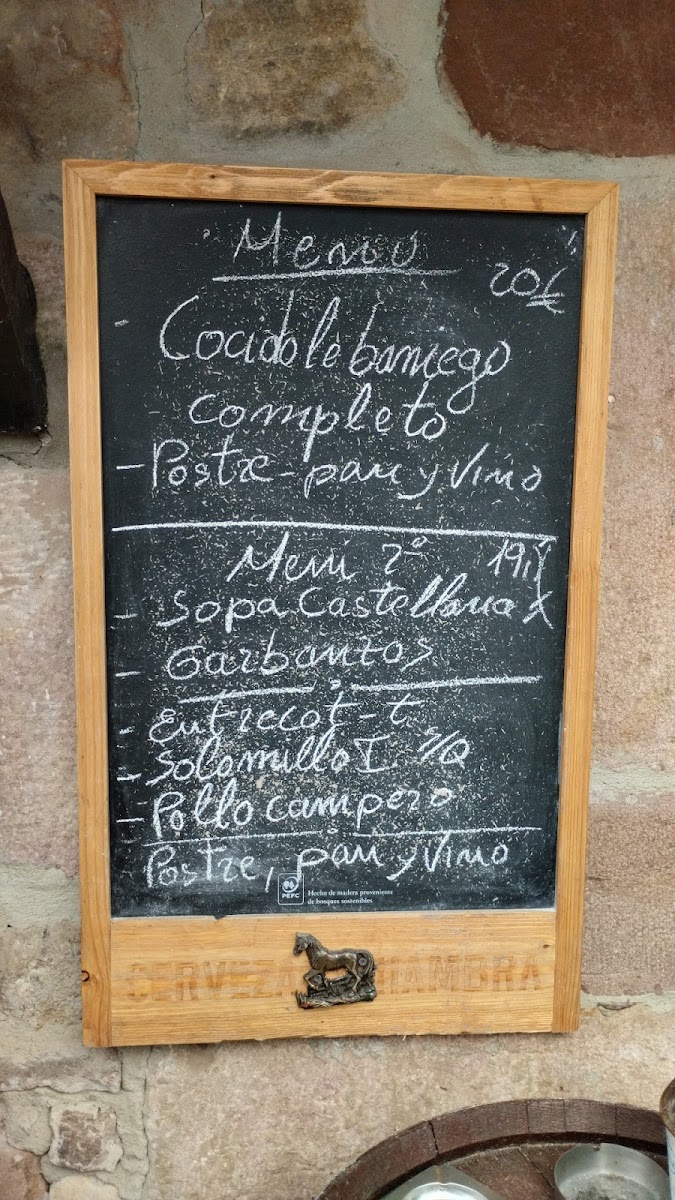 Menú
20€
- Cocido lebaniego
completo
- Postre - pan y vino
Menú 2º
- Sopa Castellana
- Garbanzos
- Entrecot - t
- Solomillo I. s/Q
- Pollo campero
Postre, pan y vino
PEFC
Hecho de madera proveniente
de bosques sostenibles
CERVEZA ALHAMBRA